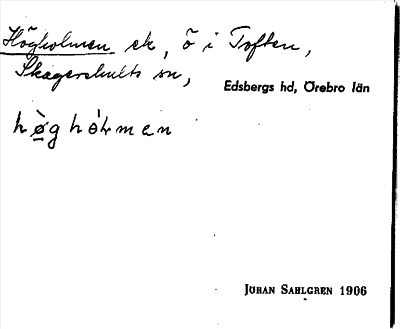 Högholmen ek, ö i Toften,
Skagershults sn,
Edsbergs hd, Örebro län
JÖRAN SAHLGREN 1906